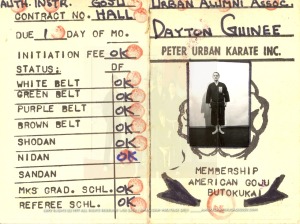 AUTH. INSTR. GOJU
CONTRACT NO. HALL
DUE 1 DAY OF MO.
INITIATION FEE OK
STATUS: DF
WHITE BELT OK
GREEN BELT OK
PURPLE BELT OK
BROWN BELT OK
SHODAN OK
NIDAN OK
SANDAN
MKS GRAD. SCHL. OK
REFEREE SCHL. OK
URBAN ALUMNI ASSOC.
DAYTON GUINEE
PETER URBAN KARATE INC.
MEMBERSHIP
AMERICAN GOJU
BUTOKUKAI